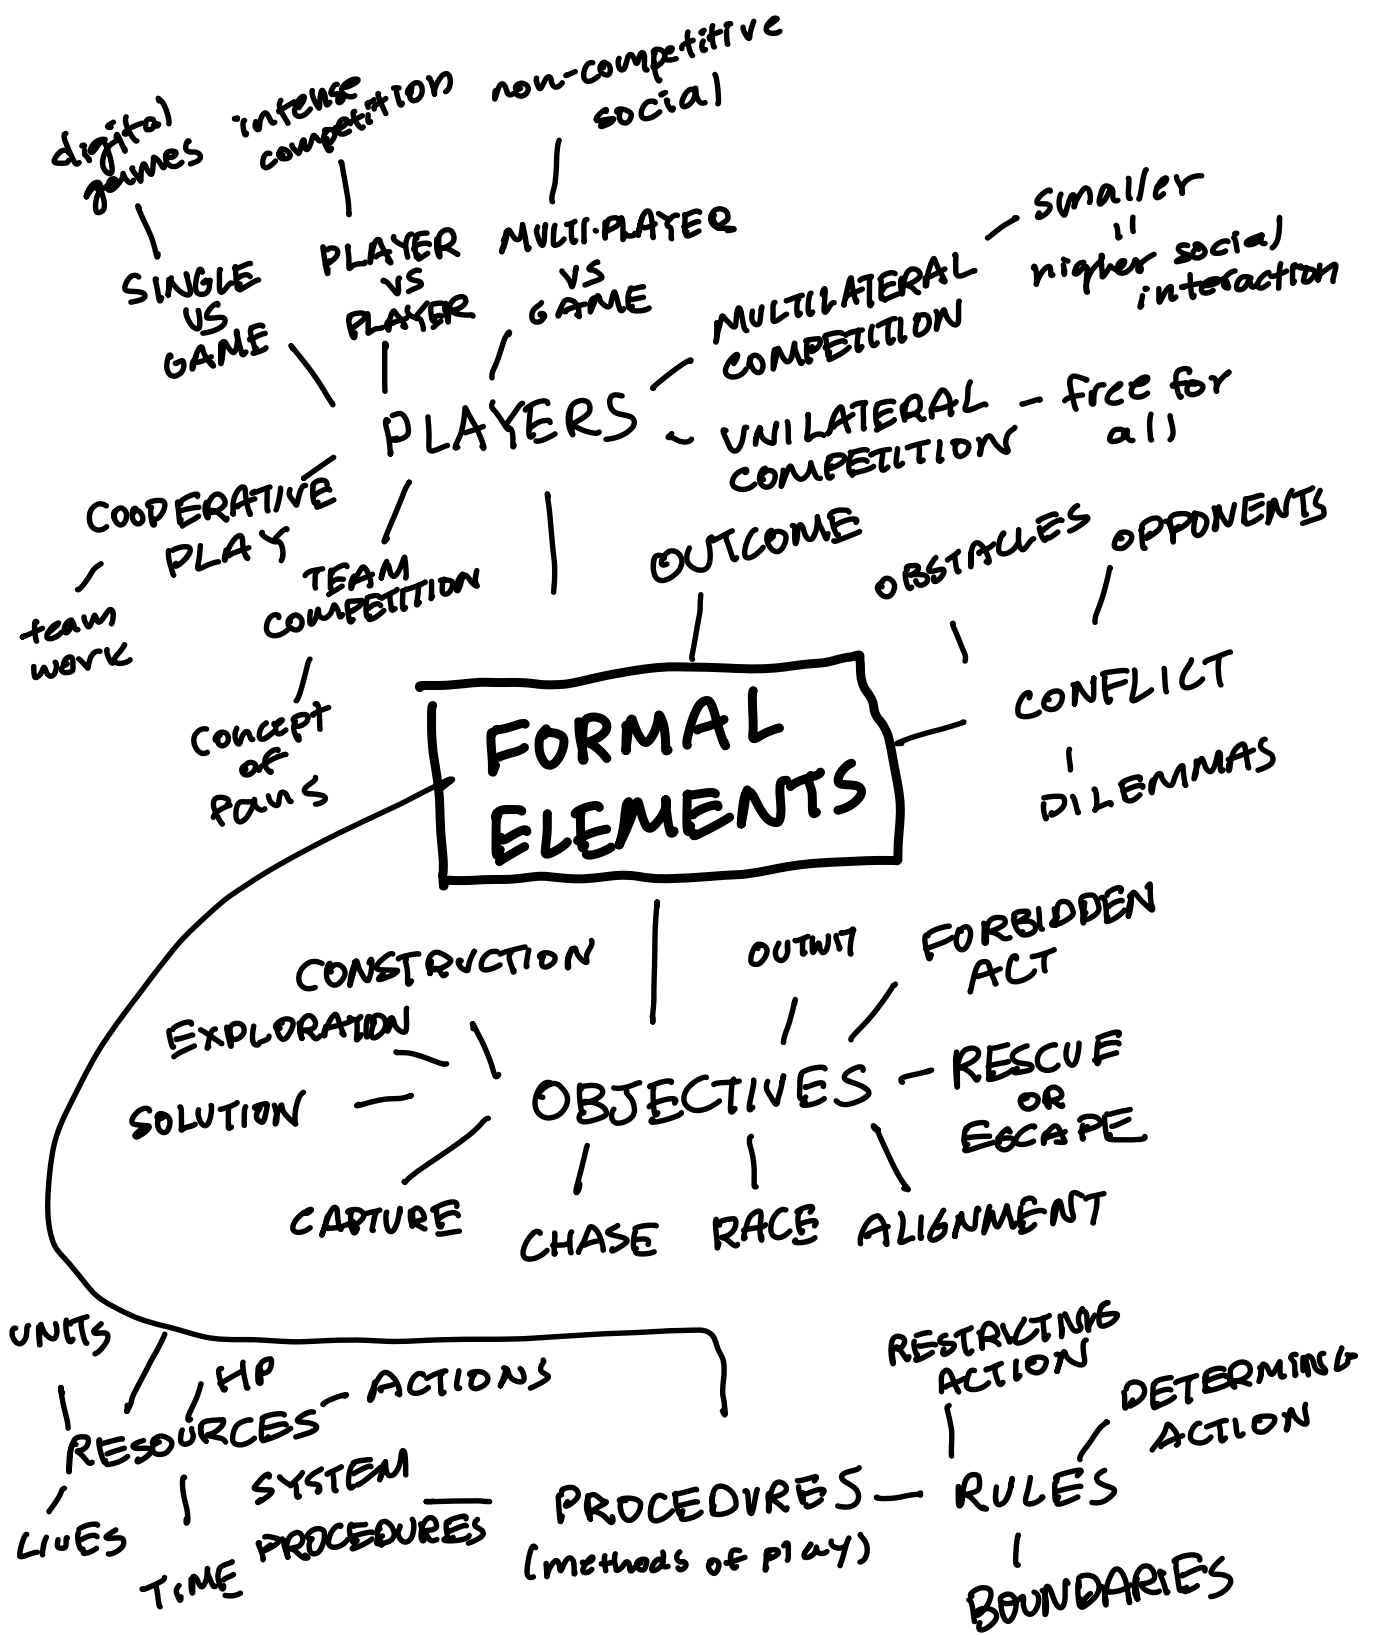 digital
games
intense
competition
non-competitive
social
SINGLE
VS
GAME
PLAYER
VS
PLAYER
MULTI-PLAYER
VS
GAME
MULTILATERAL
COMPETITION
smaller
=
higher social
interaction
PLAYERS
UNILATERAL
COMPETITION
free for
all
COOPERATIVE
PLAY
team
work
TEAM
COMPETITION
concept
of
fans
OUTCOME
OBSTACLES
OPPONENTS
CONFLICT
DILEMMAS
FORMAL
ELEMENTS
CONSTRUCTION
EXPLORATION
SOLUTION
OUTWIT
FORBIDDEN
ACT
OBJECTIVES
RESCUE
OR
ESCAPE
CAPTURE
CHASE
RACE
ALIGNMENT
UNITS
HP
ACTIONS
RESOURCES
LIVES
TIME
SYSTEM
PROCEDURES
PROCEDURES
(methods of play)
RESTRICTING
ACTION
DETERMINING
ACTION
RULES
BOUNDARIES